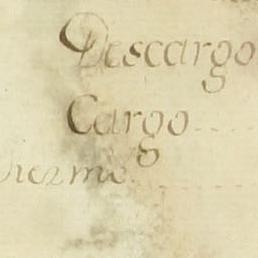 Descargo
Cargo
Diezmo